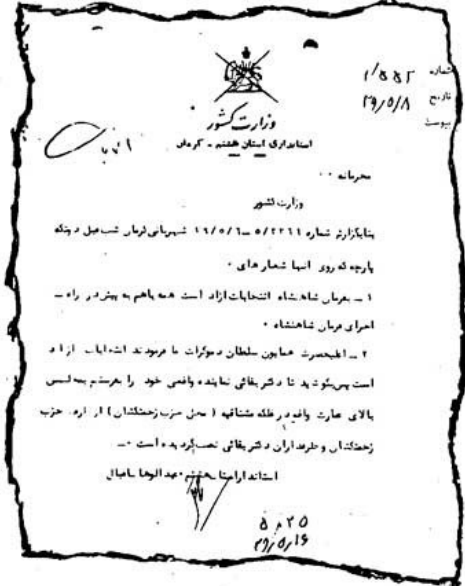 شماره ۱/۵۵۲
تاریخ ۳۹/۵/۸
پیوست
وزارت کشور
استانداری استان هشتم - کرمان
محرمانه ۰۰
وزارت کشور
بنابگزارش شماره ۵/۲۲۶۱ - ۱۶/۵/۶ شهربانی کرمان شب قبل دوتکه
پارچه که روی انها شعار های ۰
۱ - بفرمان شاهنشاه انتخابات ازاد است همه باهم به پیش در راه -
اجرای فرمان شاهنشاه ۰
۲ - اعلیحضرت همایون سلطان دموکرات ما فرمودند انتخابات ازاد
است پس بکوشید تا دکتر بقائی نماینده واقعی خود را بفرستیم بمجلس
بالای عمارت واقع در فلکه مشتاقیه ( محل حزب زحمتکشان ) از طرف حزب
زحمتکشان وطرفداران دکتر بقائی نصب گردیده است ۰-
استاندار استان هشتم
۵۰۲۵
۳۹/۵/۱۶